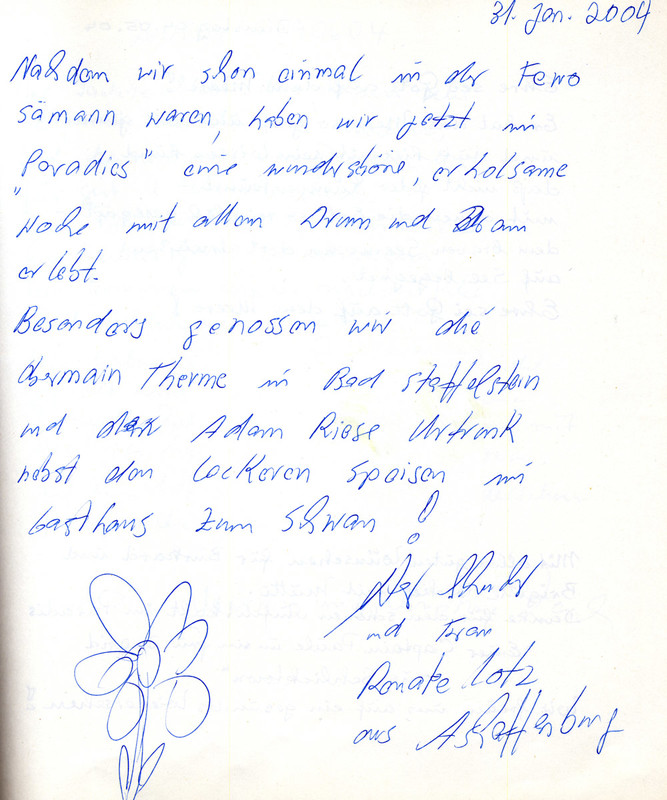 31. Jan. 2004
Nachdem wir schon einmal in der Fewo
Sämann waren, haben wir jetzt im
"Paradies" eine wunderschöne, erholsame
Woche mit allem Drum und Dran
erlebt.
Besonders genossen wir die
Obermain Therme in Bad Staffelstein
und den Adam Riese Urtrunk
nebst den leckeren Speisen im
Gasthaus zum Schwan!
und Frau
Renate Lotz
aus Aschaffenburg